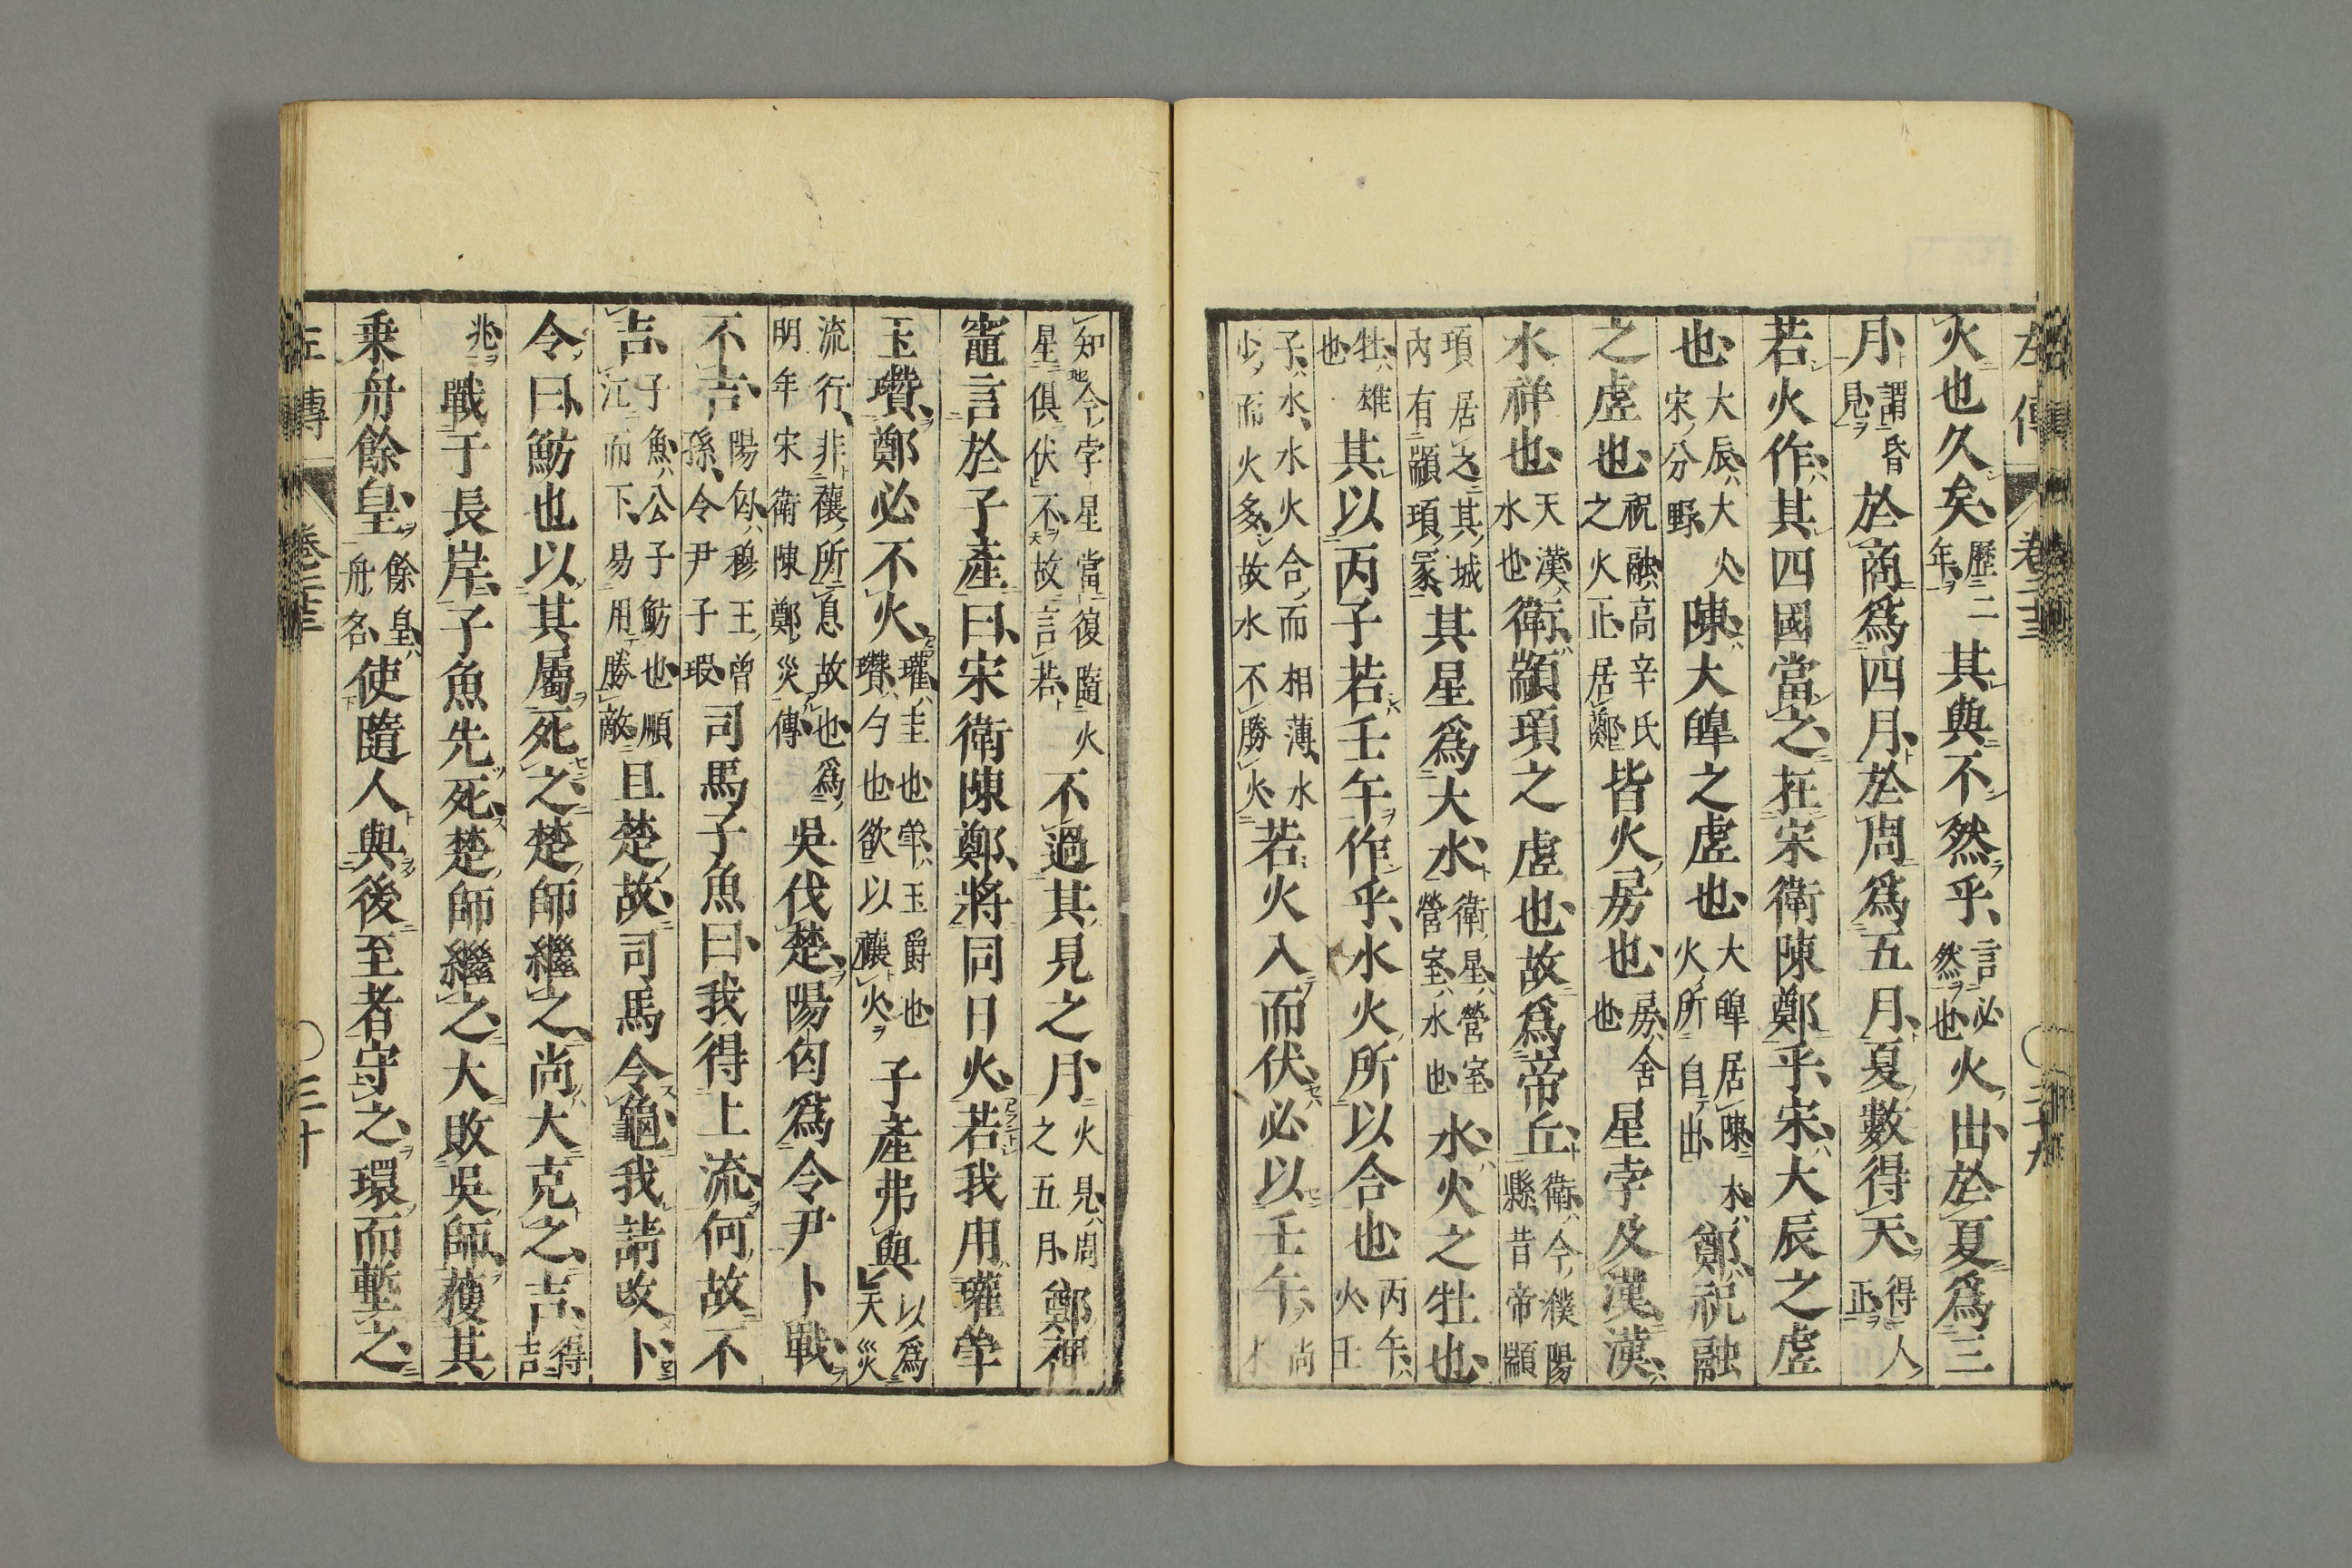 左傳 卷二十三 二十九
火也久矣歷二年其與不然乎言必然也火出於夏爲三
月謂昏見於商爲四月於周爲五月夏數得天得人正
若火作其四國當之在宋衛陳鄭乎宋大辰之虛
也大辰大火宋分野陳大皥之虛也大皥居陳木火所自出鄭祝融
之虛也祝融高辛氏之火正居鄭皆火房也房舍也星孛及漢漢
水祥也天漢水也衛顓頊之虛也故爲帝丘衛今濮陽縣昔帝顓
頊居之其城內有顓頊冢其星爲大水衛星營室營室水也水火之牡也
牡雄也其以丙子若壬午作乎水火所以合也丙午火壬
子水水火合而相薄水少而火多故水不勝火若火入而伏必以壬午尚
知今孛星當復隨火星俱伏不故言若不過其見之月火見周之五月鄭裨
竈言於子產曰宋衛陳鄭將同日火若我用瓘斝
玉瓚鄭必不火瓘圭也斝玉爵也瓚勺也欲以禳火子產弗與以爲天災
流行非禳所息故也爲明年宋衛陳鄭災傳吳伐楚陽匄爲令尹卜戰
不吉陽匄穆王曾孫令尹子瑕司馬子魚曰我得上流何故不
吉子魚公子魴也順江而下易用勝敵且楚故司馬令龜我請改卜
令曰魴也以其屬死之楚師繼之尚大克之吉得吉
兆戰于長岸子魚先死楚師繼之大敗吳師獲其
乗舟餘皇餘皇舟名使隨人與後至者守之環而塹之
左傳 卷二十三 三十